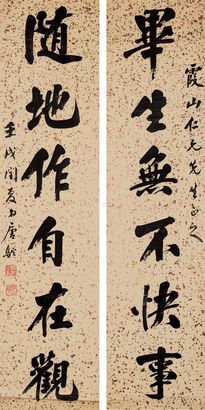 畢生無不快事
霞山仁兄先生正之
随地作自在觀
壬戌閏夏